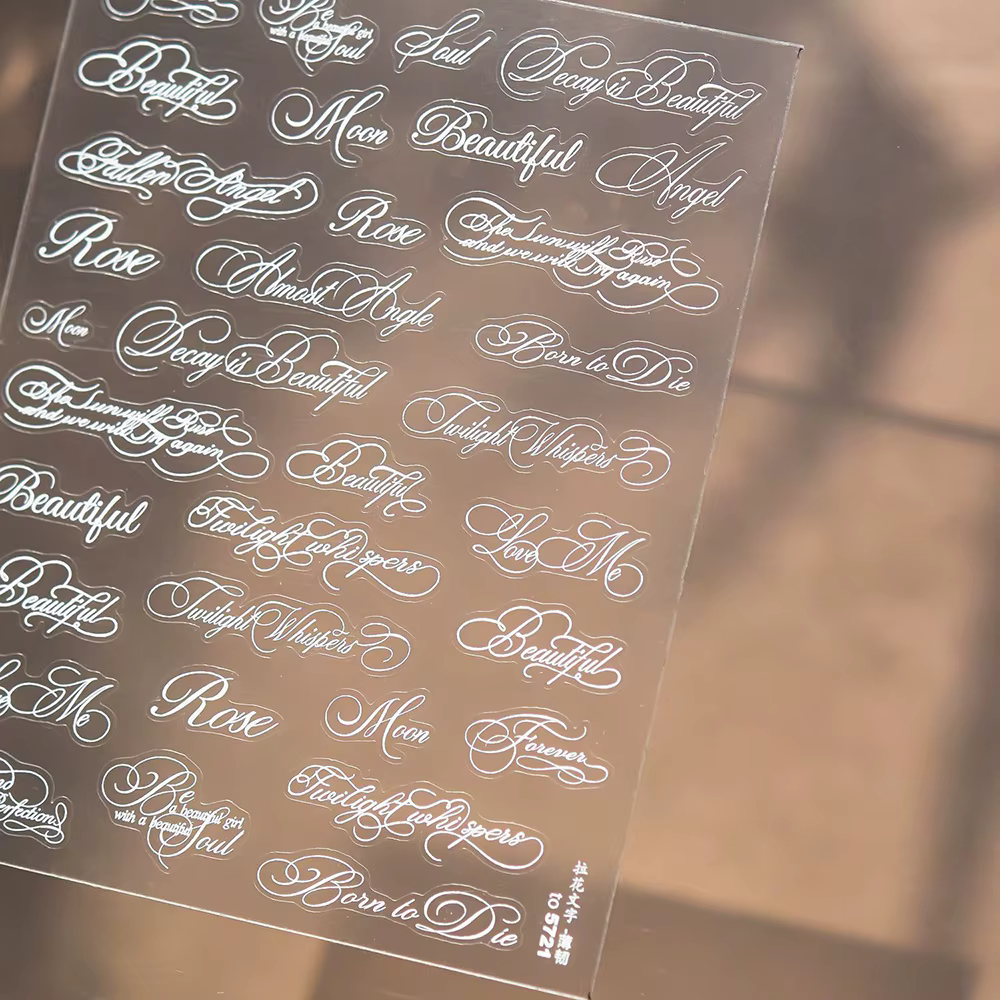 Be
a beautiful girl
with a beautiful
Soul
Soul
Decay is Beautiful
Beautiful
Moon
Beautiful
Angel
Fallen Angel
Rose
The Sun will Rise
and we will Try again
Rose
Almost Angle
Born to Die
Moon
Decay is Beautiful
Twilight Whispers
The Sun will Rise
and we will Try again
Beautiful
Beautiful
Twilight whispers
Love Me
Beautiful
Twilight Whispers
Beautiful
Me
Rose
Moon
Forever
Perfection
Be
a beautiful girl
with a beautiful
Soul
Twilight whispers
Born to Die
拉花文字-薄韧
to 5721